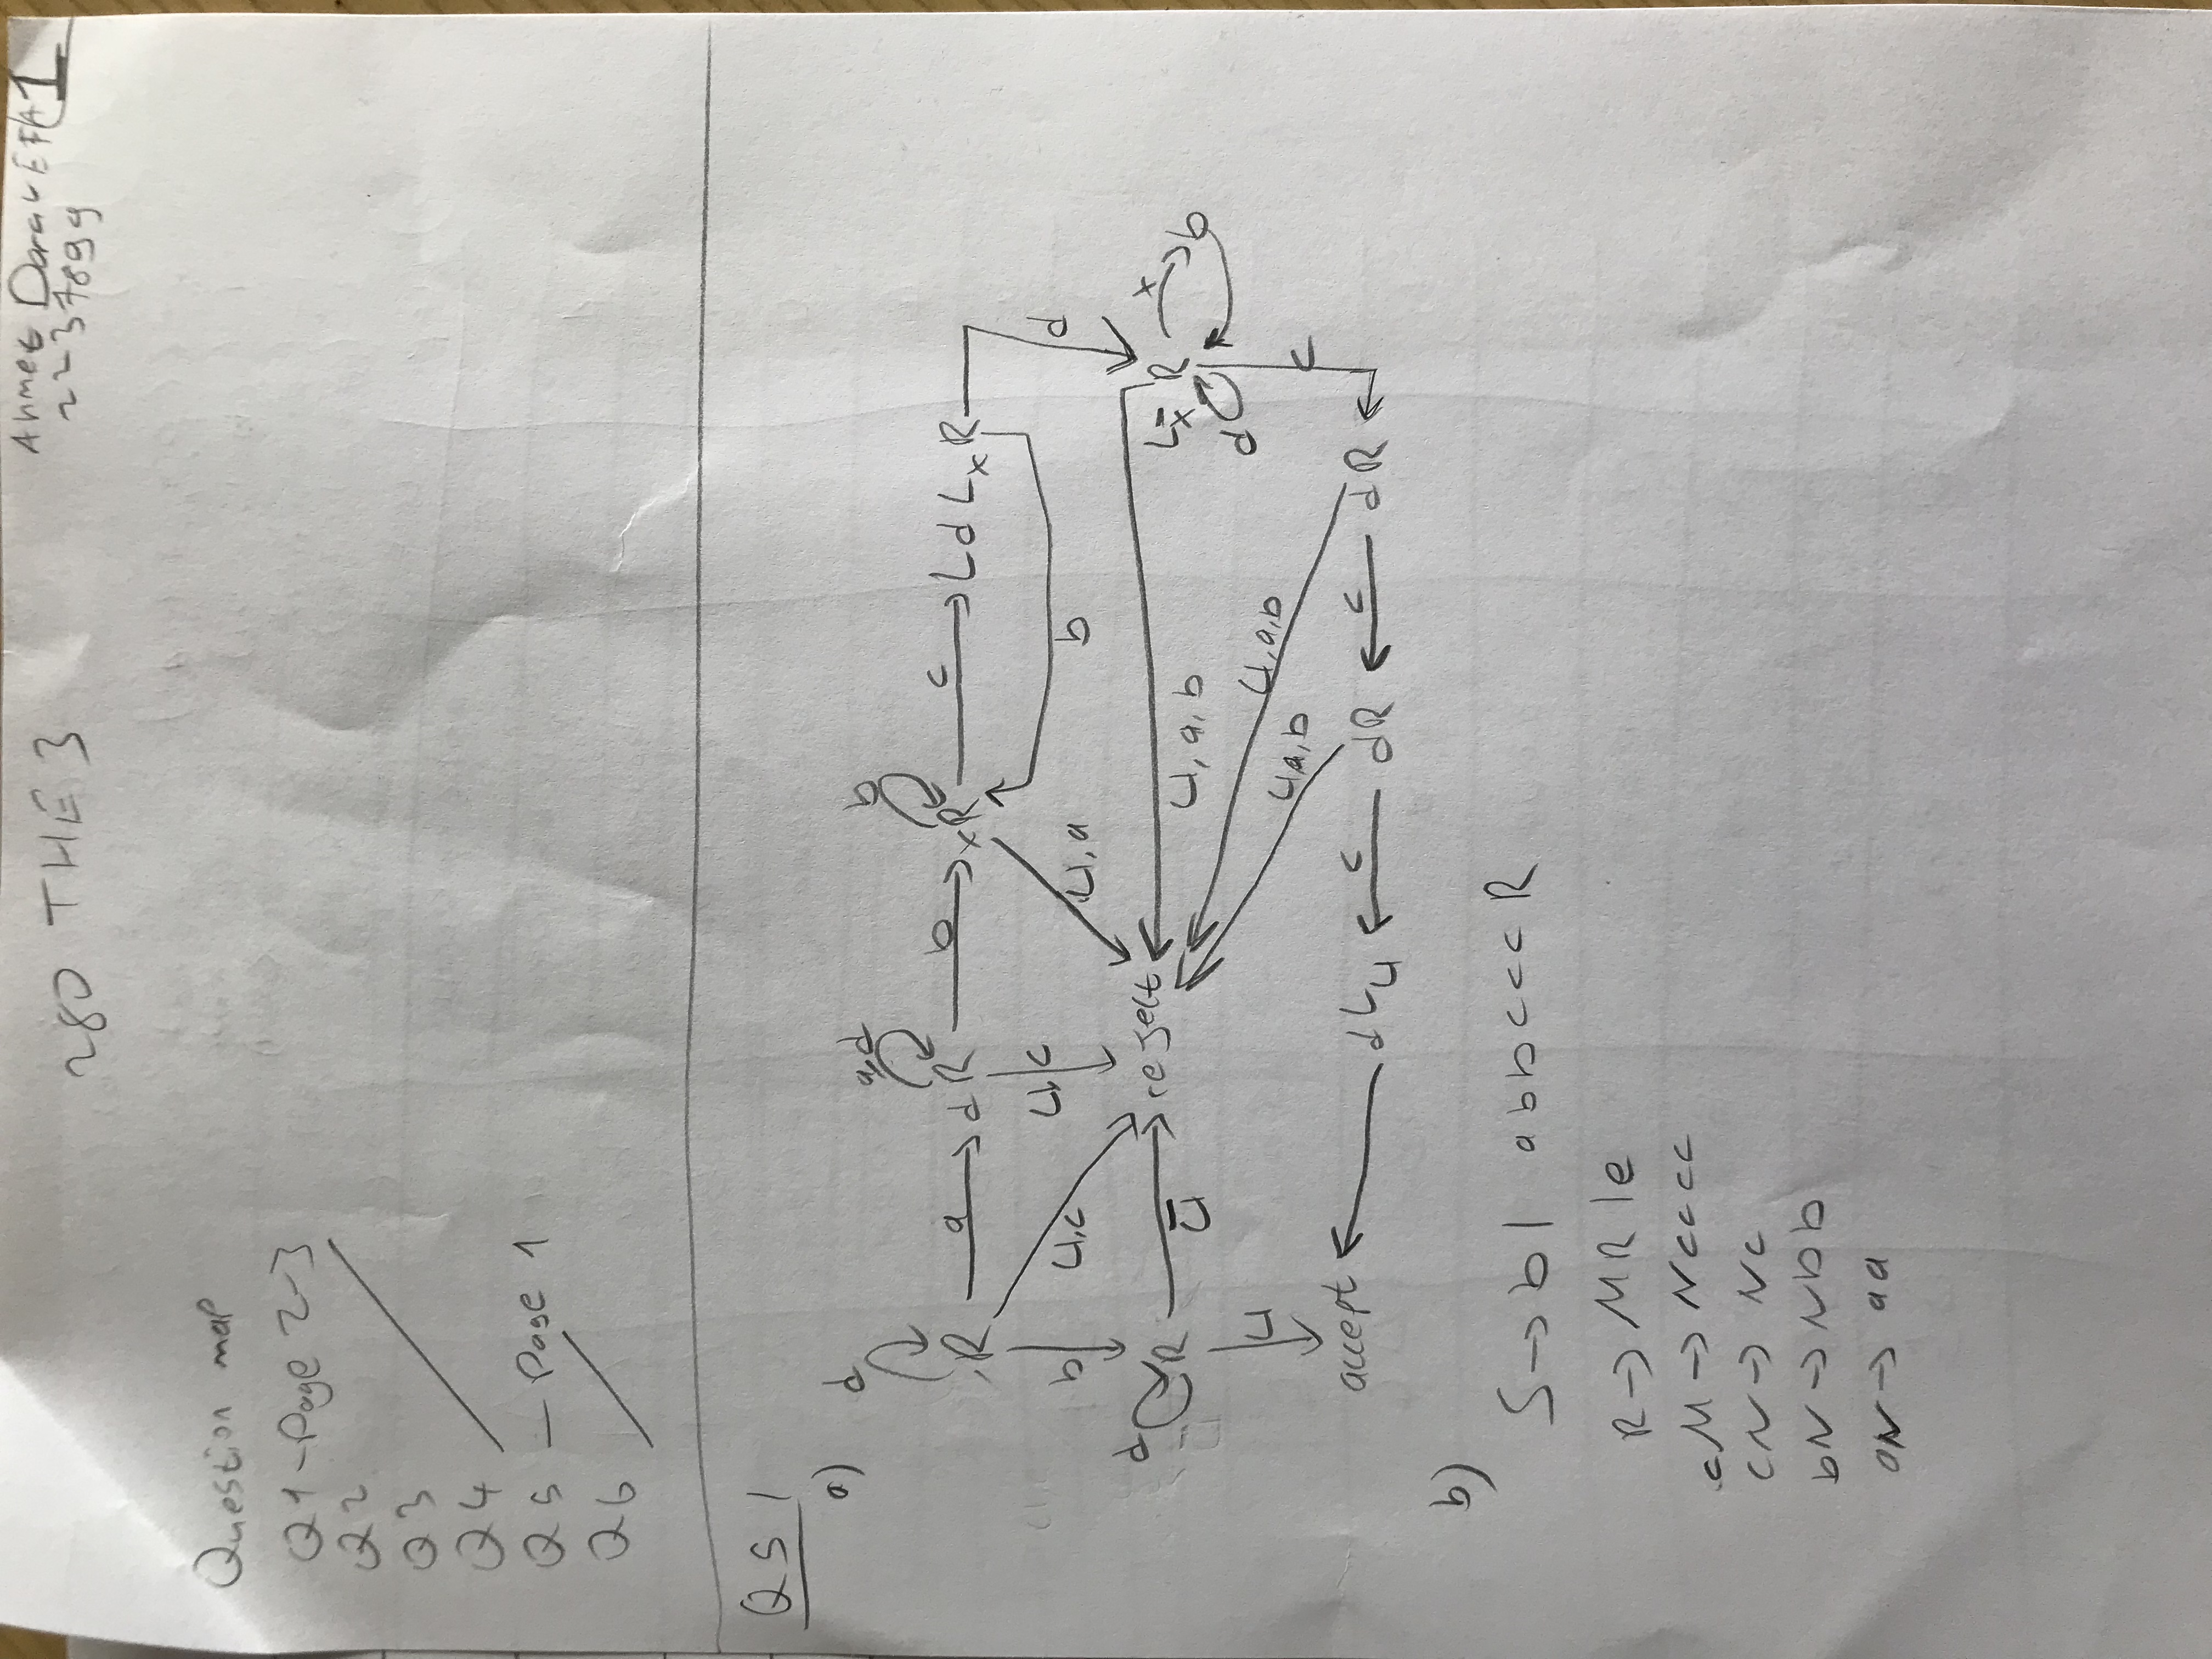 280 THE 3
Ahmet
1
2237899
Question map
Q1 - Page 2-3
Q2
Q3
Q4
Q5 — Page 1
Q6
Q5 /
a)
d
a,d
b
R
a
dR
b
xR
c
LdLxR
b
⊔,c
⊔,c
⊔,a
b
d
d
R
⊔̅
reject
⊔,a,b
Lx̄R
x
b
d
⊔
⊔a,b
⊔,a,b
c
accept
dL⊔
c
dR
c
dR
b)
S → b | abbcccR
R → MR | e
cM → Ncccc
cN → Nc
bN → Nbb
aN → aa